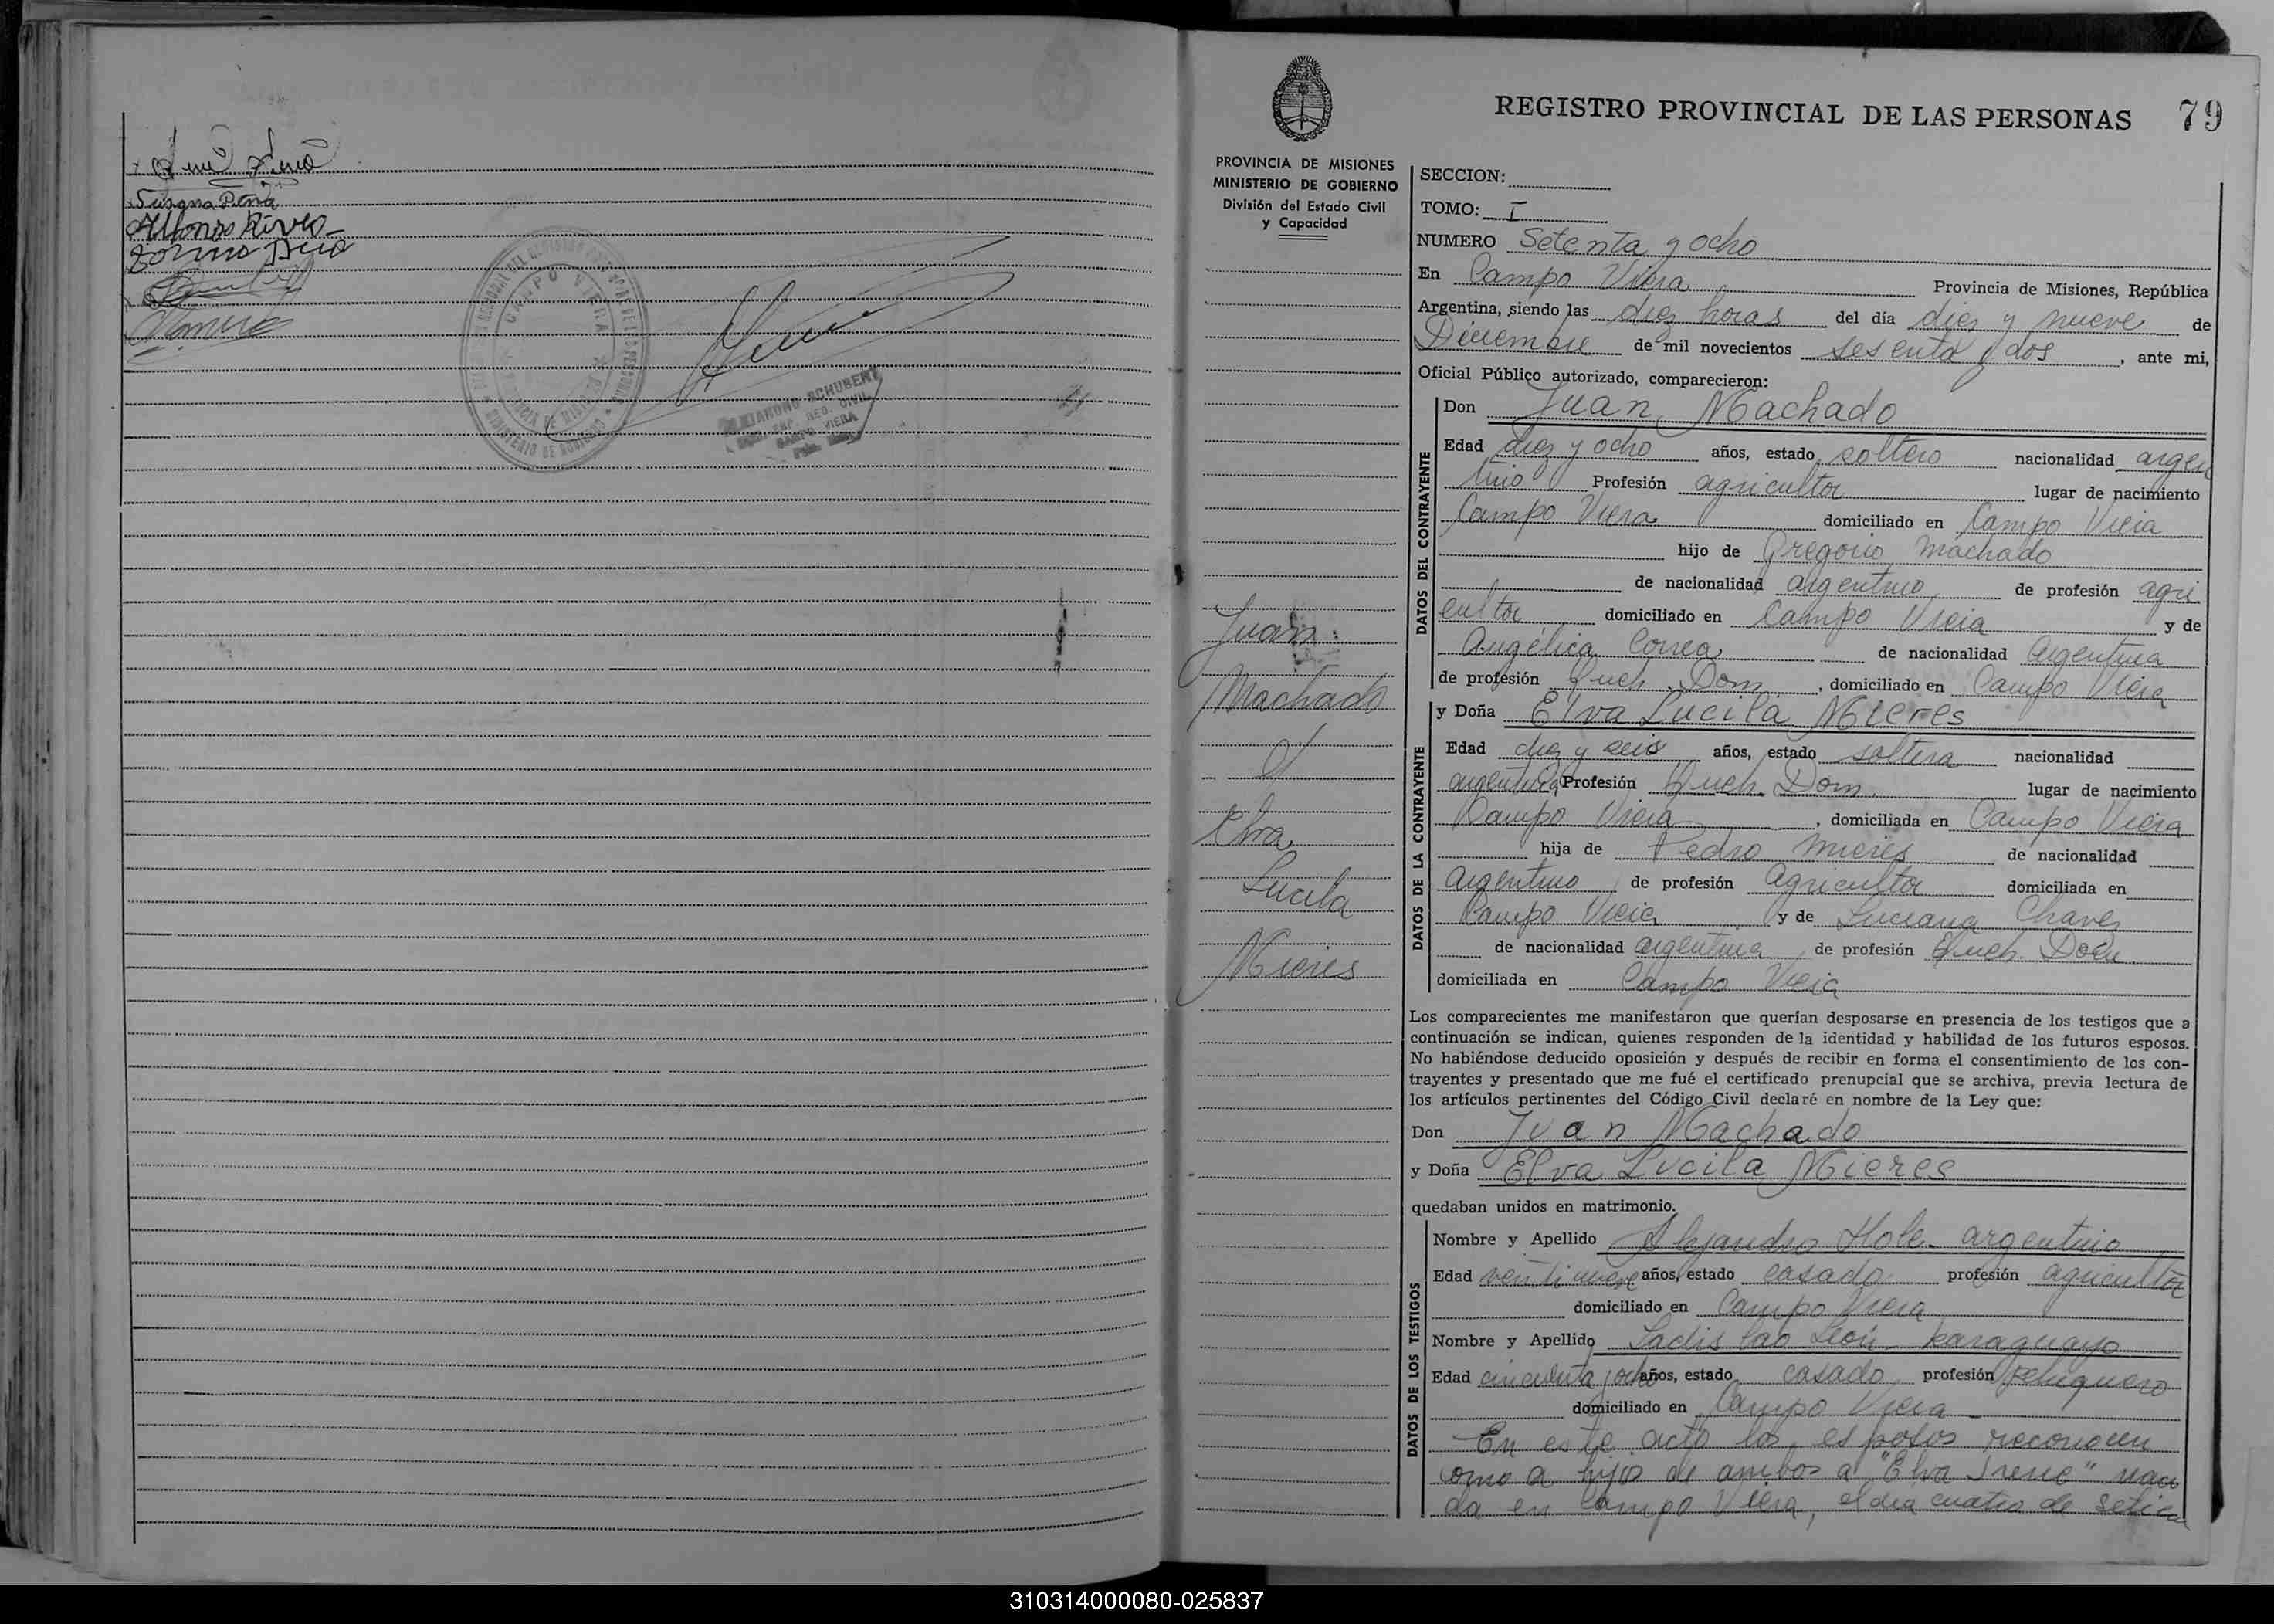 Susana Peña
Alfonso Rivero
CAMPO VIERA
ALEJANDRO SCHUBERT
REG. CIVIL
CAMPO VIERA
REGISTRO PROVINCIAL DE LAS PERSONAS 79
PROVINCIA DE MISIONES
MINISTERIO DE GOBIERNO
División del Estado Civil
y Capacidad
Juan
Machado
y
Elva
Lucila
Mieres
SECCION:
TOMO: I
NUMERO Setenta y ocho
En Campo Viera Provincia de Misiones, República
Argentina, siendo las diez horas del día diez y nueve de
Diciembre de mil novecientos sesenta y dos, ante mi,
Oficial Público autorizado, comparecieron:
DATOS DEL CONTRAYENTE
Don Juan Machado
Edad diez y ocho años, estado soltero nacionalidad argen
tino Profesión agricultor lugar de nacimiento
Campo Viera domiciliado en Campo Viera
hijo de Gregorio Machado
de nacionalidad argentino de profesión agri
cultor domiciliado en Campo Viera y de
Angélica Correa de nacionalidad argentina
de profesión Queh. Dom., domiciliado en Campo Viera
DATOS DE LA CONTRAYENTE
y Doña Elva Lucila Mieres
Edad diez y seis años, estado soltera nacionalidad
argentina Profesión Queh. Dom. lugar de nacimiento
Campo Viera, domiciliada en Campo Viera
hija de Pedro Mieres de nacionalidad
argentino de profesión agricultor domiciliada en
Campo Viera y de Luciana Chavez
de nacionalidad argentina de profesión Queh. Dom.
domiciliada en Campo Viera
Los comparecientes me manifestaron que querían desposarse en presencia de los testigos que a
continuación se indican, quienes responden de la identidad y habilidad de los futuros esposos.
No habiéndose deducido oposición y después de recibir en forma el consentimiento de los con-
trayentes y presentado que me fué el certificado prenupcial que se archiva, previa lectura de
los artículos pertinentes del Código Civil declaré en nombre de la Ley que:
Don Juan Machado
y Doña Elva Lucila Mieres
quedaban unidos en matrimonio.
DATOS DE LOS TESTIGOS
Nombre y Apellido Alejandro Hole- argentino
Edad veintinueve años, estado casado profesión agricultor
domiciliado en Campo Viera
Nombre y Apellido Ladislao León- paraguayo
Edad cincuenta y ocho años, estado casado profesión
domiciliado en Campo Viera -
En este acto los esposos reconocen
como a hijo de ambos a "Elva Irene" naci
da en Campo Viera, el dia cuatro de setiem
310314000080-025837